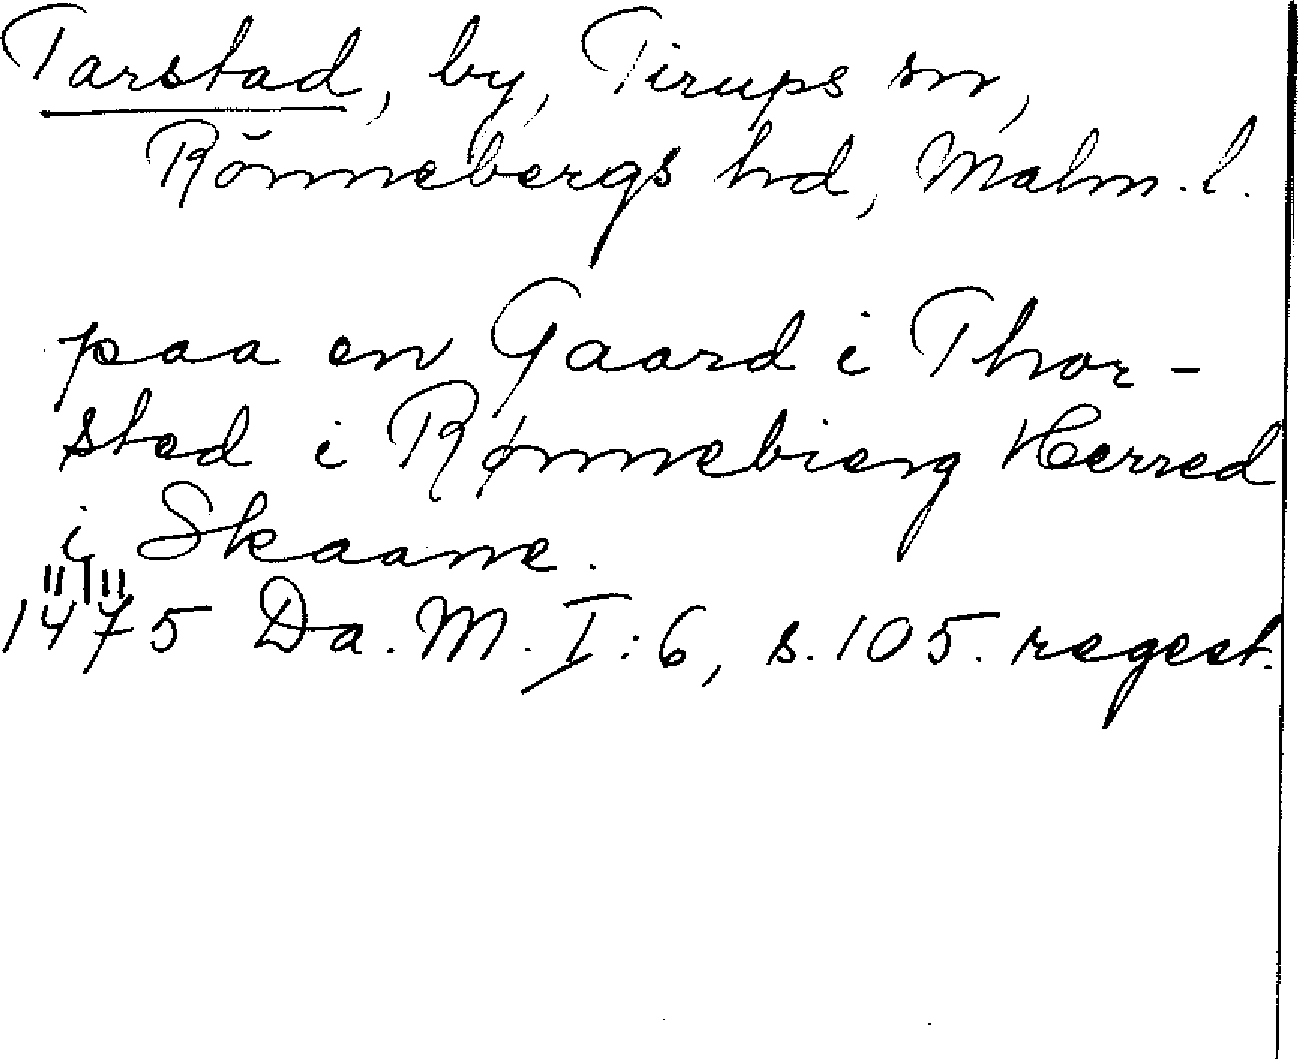 Tarstad, by, Tirups sn,
Rönnebergs hd, Malm. l.
paa en Gaard i Thor-
sted i Rønnebierg Herred
i Skaane.
1475 Da. M. I: 6, s. 105. regest.